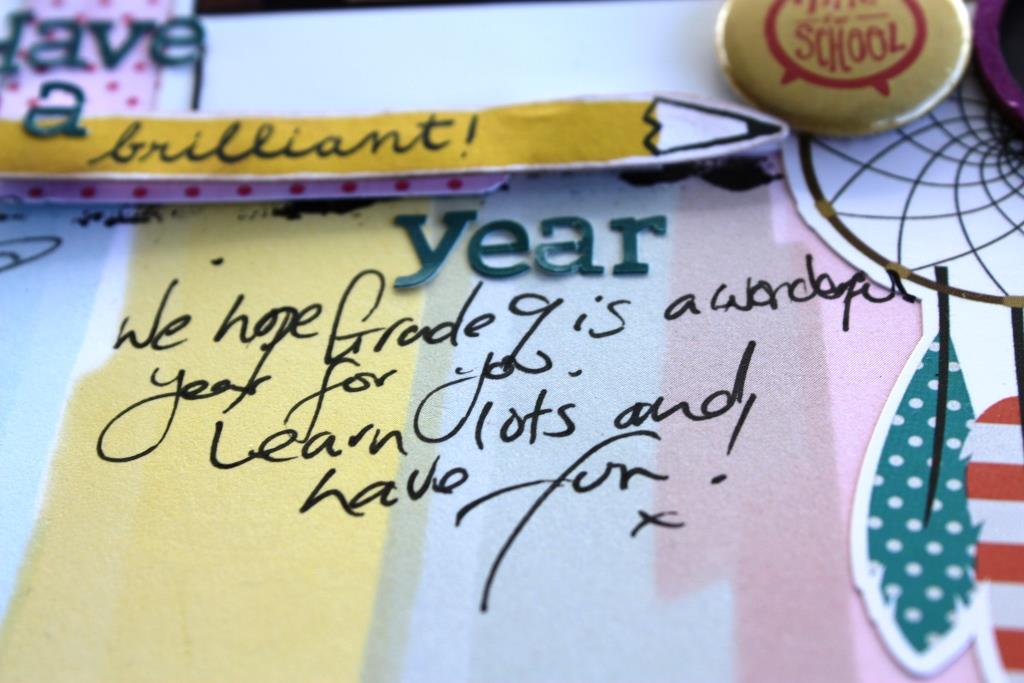 Have
a
brilliant!
year
SCHOOL
We hope Grade 9 is a wonderful
year for you.
Learn lots and
have fun!
x